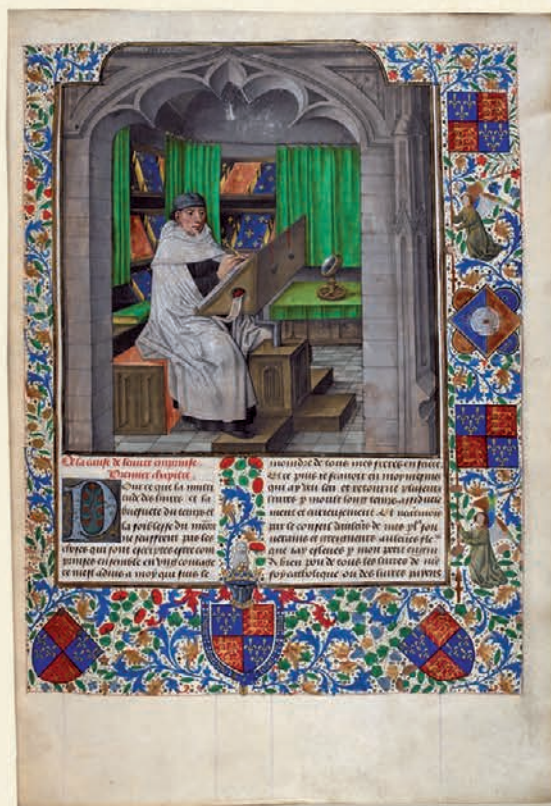 De la cause de leuure emprinse
Premier chapitre
Pour ce que la multi
tude des liures et la
briefuete du temps et
la foiblesse du memo
ne seuffrent pas les
choses qui sont escriptes estre com
prinses ensemble en ung courage
ce mest aduis a moy qui suis le
moindre de tous mes freres en faire
Et ce puis ie scauoir en moy mesmes
qui ay veu leu et retourne plusieurs
liures y moult long temps assiduele
ment et curieusement Et neantmoins
par le conseil daulcuns de mes
uerains et greigneurs aulcunes fle
que iay esleues y mon petit engin
de bien pou de tous les liures de nre
foy catholique ou des liures paiens